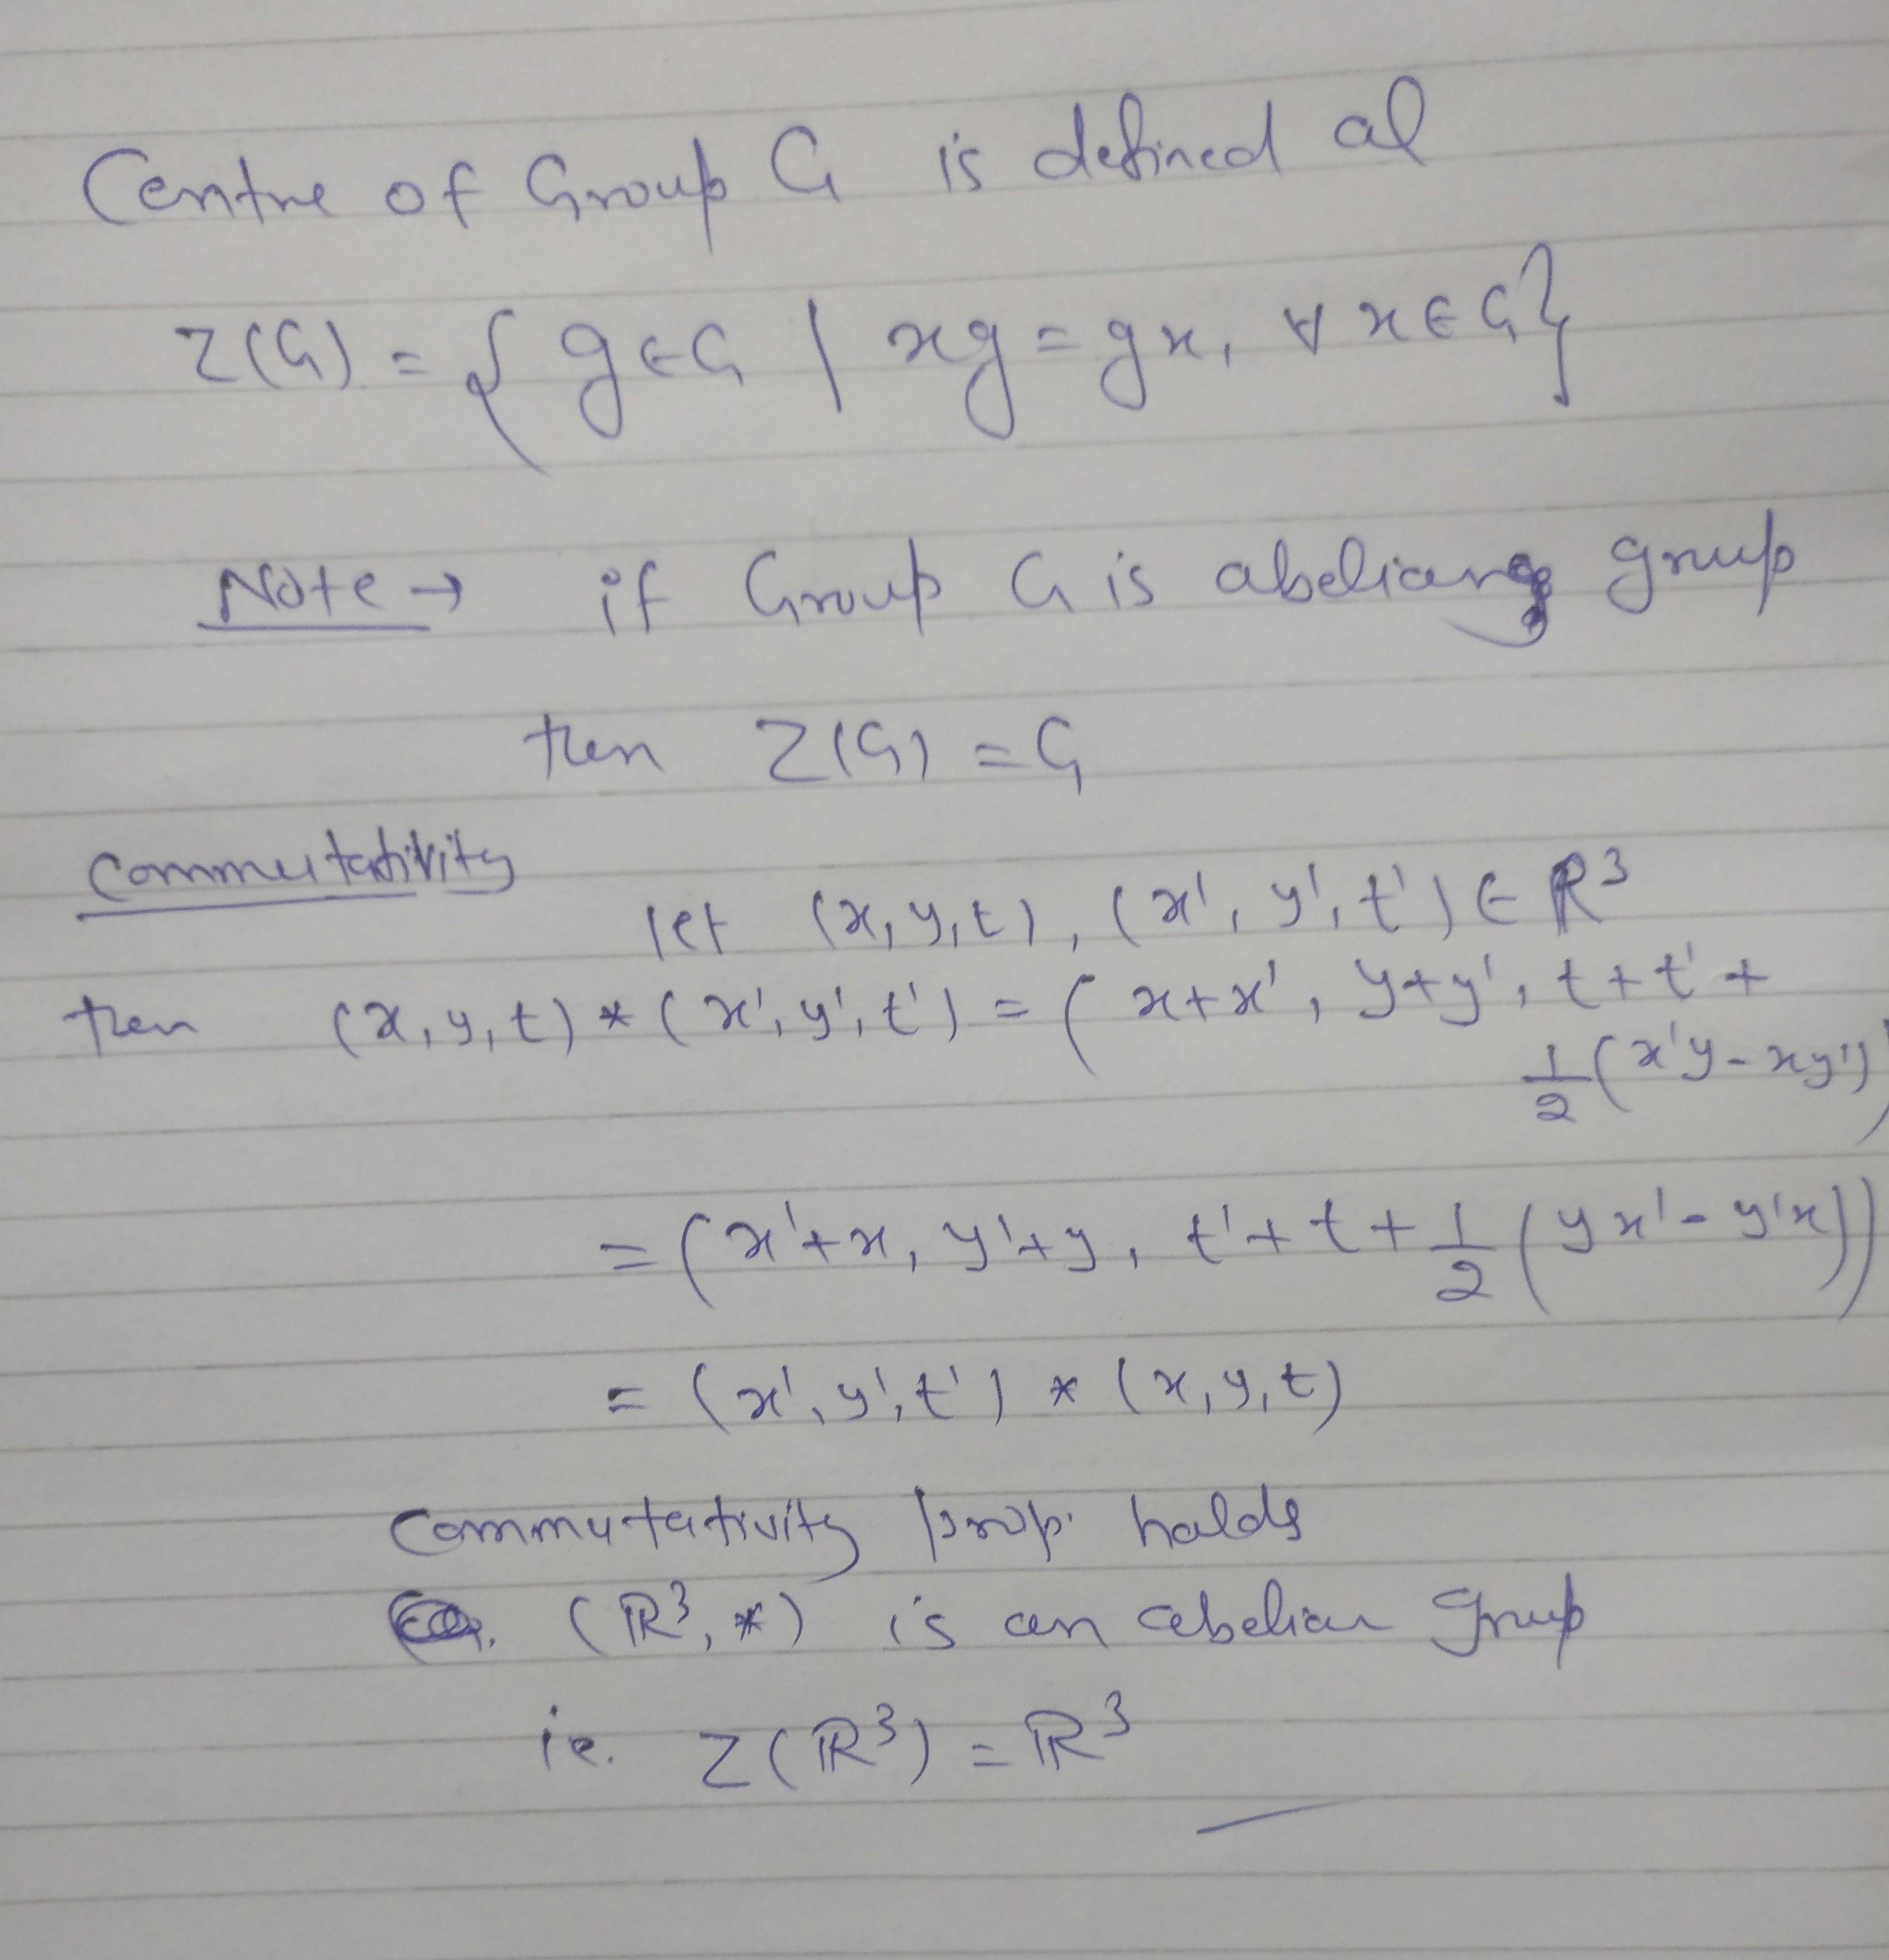 Centre of Group G is defined as
Z(G) = { g ∈ G | xg = gx, ∀ x ∈ G }
Note → if Group G is abelian group
then Z(G) = G
Commutativity
let (x, y, t), (x', y', t') ∈ R³
then (x, y, t) * (x', y', t') = ( x+x', y+y', t+t'+
1/2 (x'y - xy'))
= (x'+x, y'+y, t'+t + 1/2 (yx' - y'x))
= (x', y', t') * (x, y, t)
Commutativity prop. holds
(ℝ³, *) is an abelian group
ie. Z(ℝ³) = ℝ³